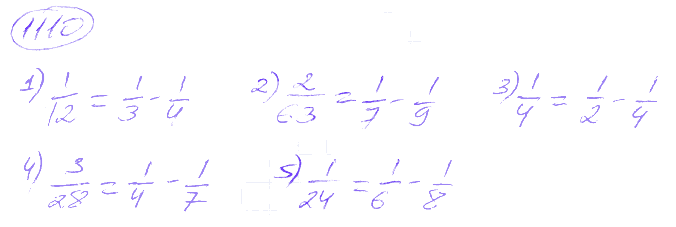 1110
1) 1/12 = 1/3 - 1/4 2) 2/63 = 1/7 - 1/9 3) 1/4 = 1/2 - 1/4
4) 3/28 = 1/4 - 1/7 5) 1/24 = 1/6 - 1/8